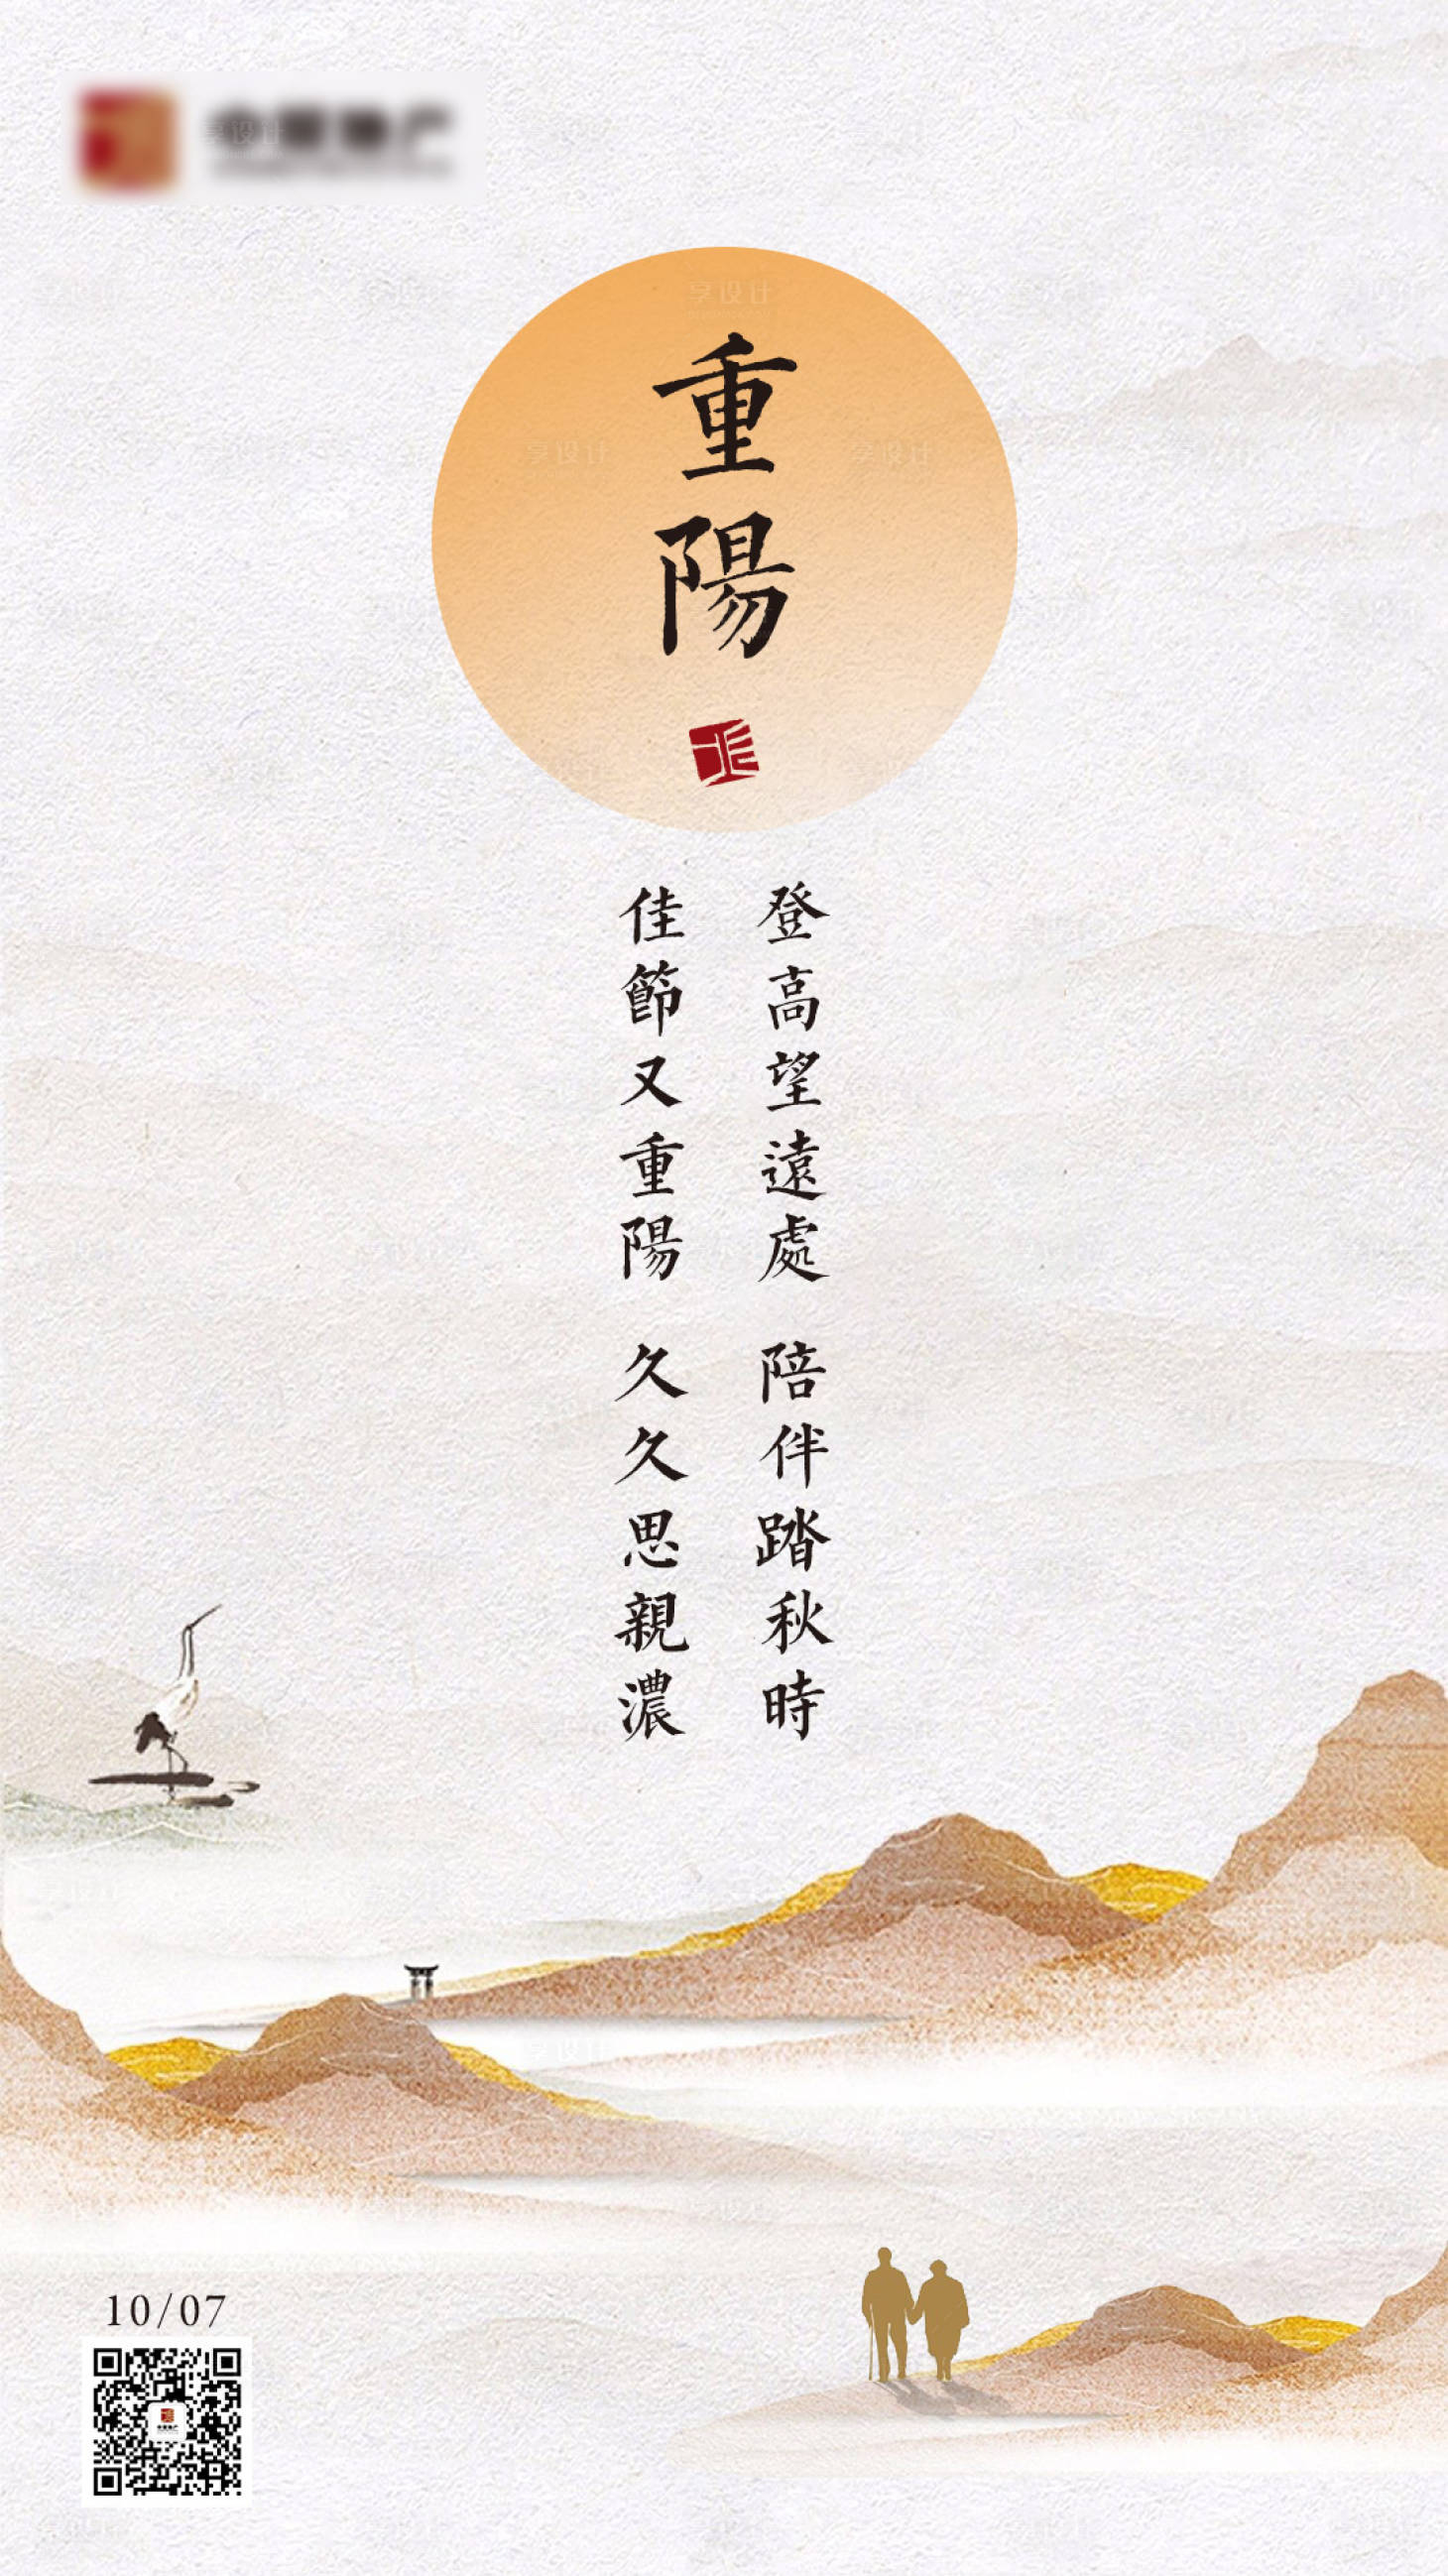 重陽
登高望遠處 陪伴踏秋時
佳節又重陽 久久思親濃
10/07
享设计